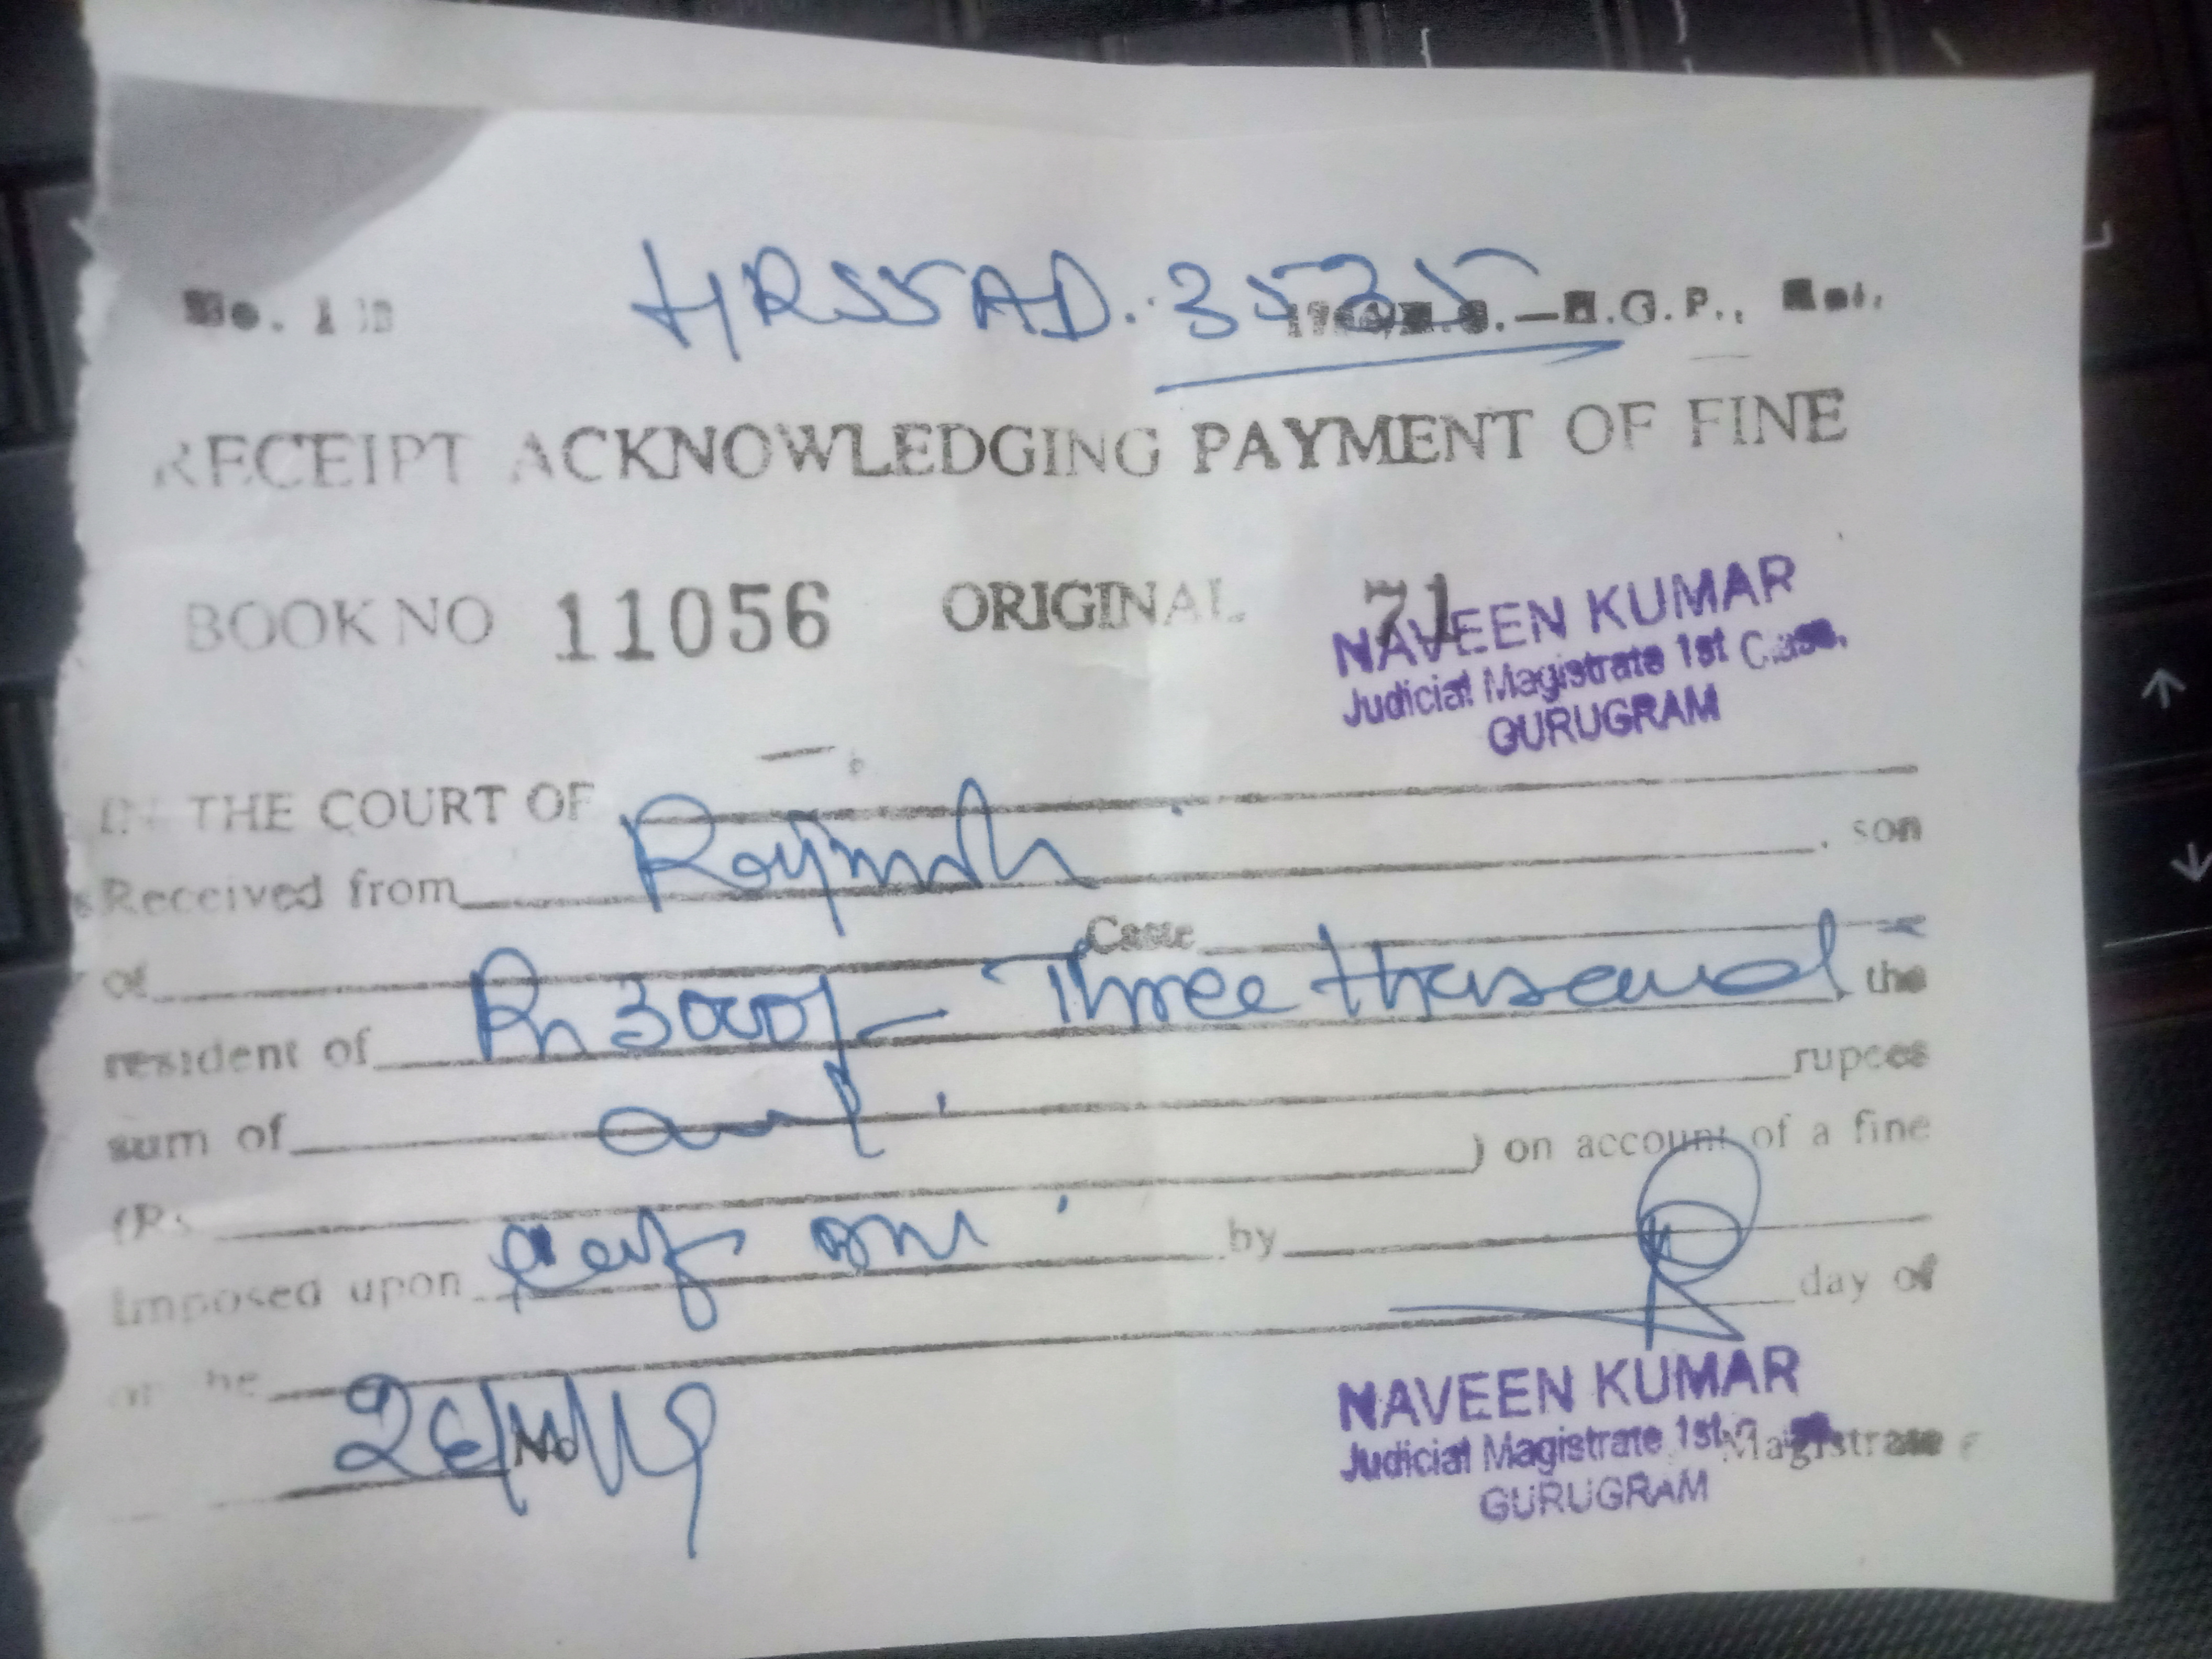 HR55AD.3535
H.G.P.,
RECEIPT ACKNOWLEDGING PAYMENT OF FINE
BOOK NO 11056 ORIGINAL 71
NAVEEN KUMAR
Judicial Magistrate 1st Class,
GURUGRAM
IN THE COURT OF
Received from , son
of Caste
resident of Rs 3000/- Three thousand the
sum of only rupees
(Rs ) on account of a fine
Imposed upon by
day of
26/11/19
NAVEEN KUMAR
Judicial Magistrate 1st Magistrate
GURUGRAM